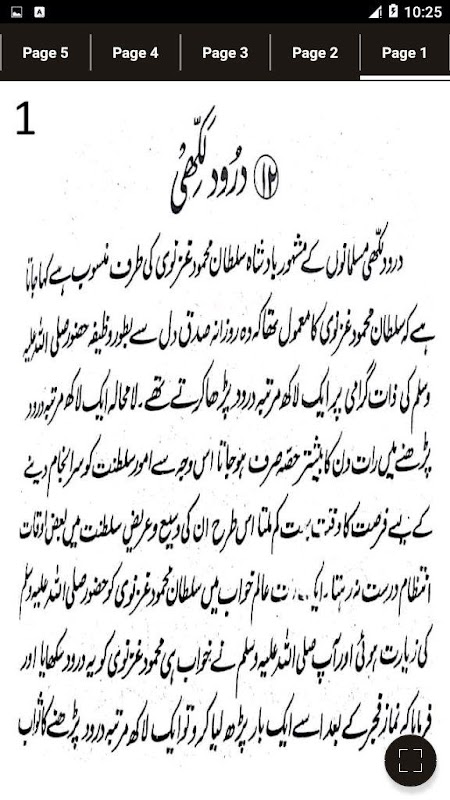 10:25
Page 5 Page 4 Page 3 Page 2 Page 1
1
۱۲ درود لکھی
درود لکھی مسلمانوں کے مشہور بادشاہ سلطان محمود غزنوی کی طرف منسوب ہے کہا جاتا
ہے کہ سلطان محمود غزنوی کا معمول تھا کہ وہ روزانہ صدق دل سے بطور وظیفہ حضور صلی اللہ علیہ
وسلم کی ذات گرامی پر ایک لاکھ مرتبہ درود پڑھا کرتے تھے۔ لا محالہ ایک لاکھ مرتبہ درود
پڑھنے میں رات دن کا بیشتر حصہ صرف ہو جاتا اس وجہ سے امور سلطنت کو سرانجام دینے
کے لیے فرصت کا وقت بہت کم ملتا اس طرح ان کی وسیع و عریض سلطنت میں بعض اوقات
انتظام درست نہ رہتا۔ ایک رات عالم خواب میں سلطان محمود غزنوی کو حضور صلی اللہ علیہ وسلم
کی زیارت ہوئی اور آپ صلی اللہ علیہ وسلم نے خواب ہی محمود غزنوی کو یہ درود سکھایا اور
فرمایا کہ نماز فجر کے بعد اسے ایک بار پڑھ لیا کرو تو ایک لاکھ مرتبہ درود پڑھنے کا ثواب